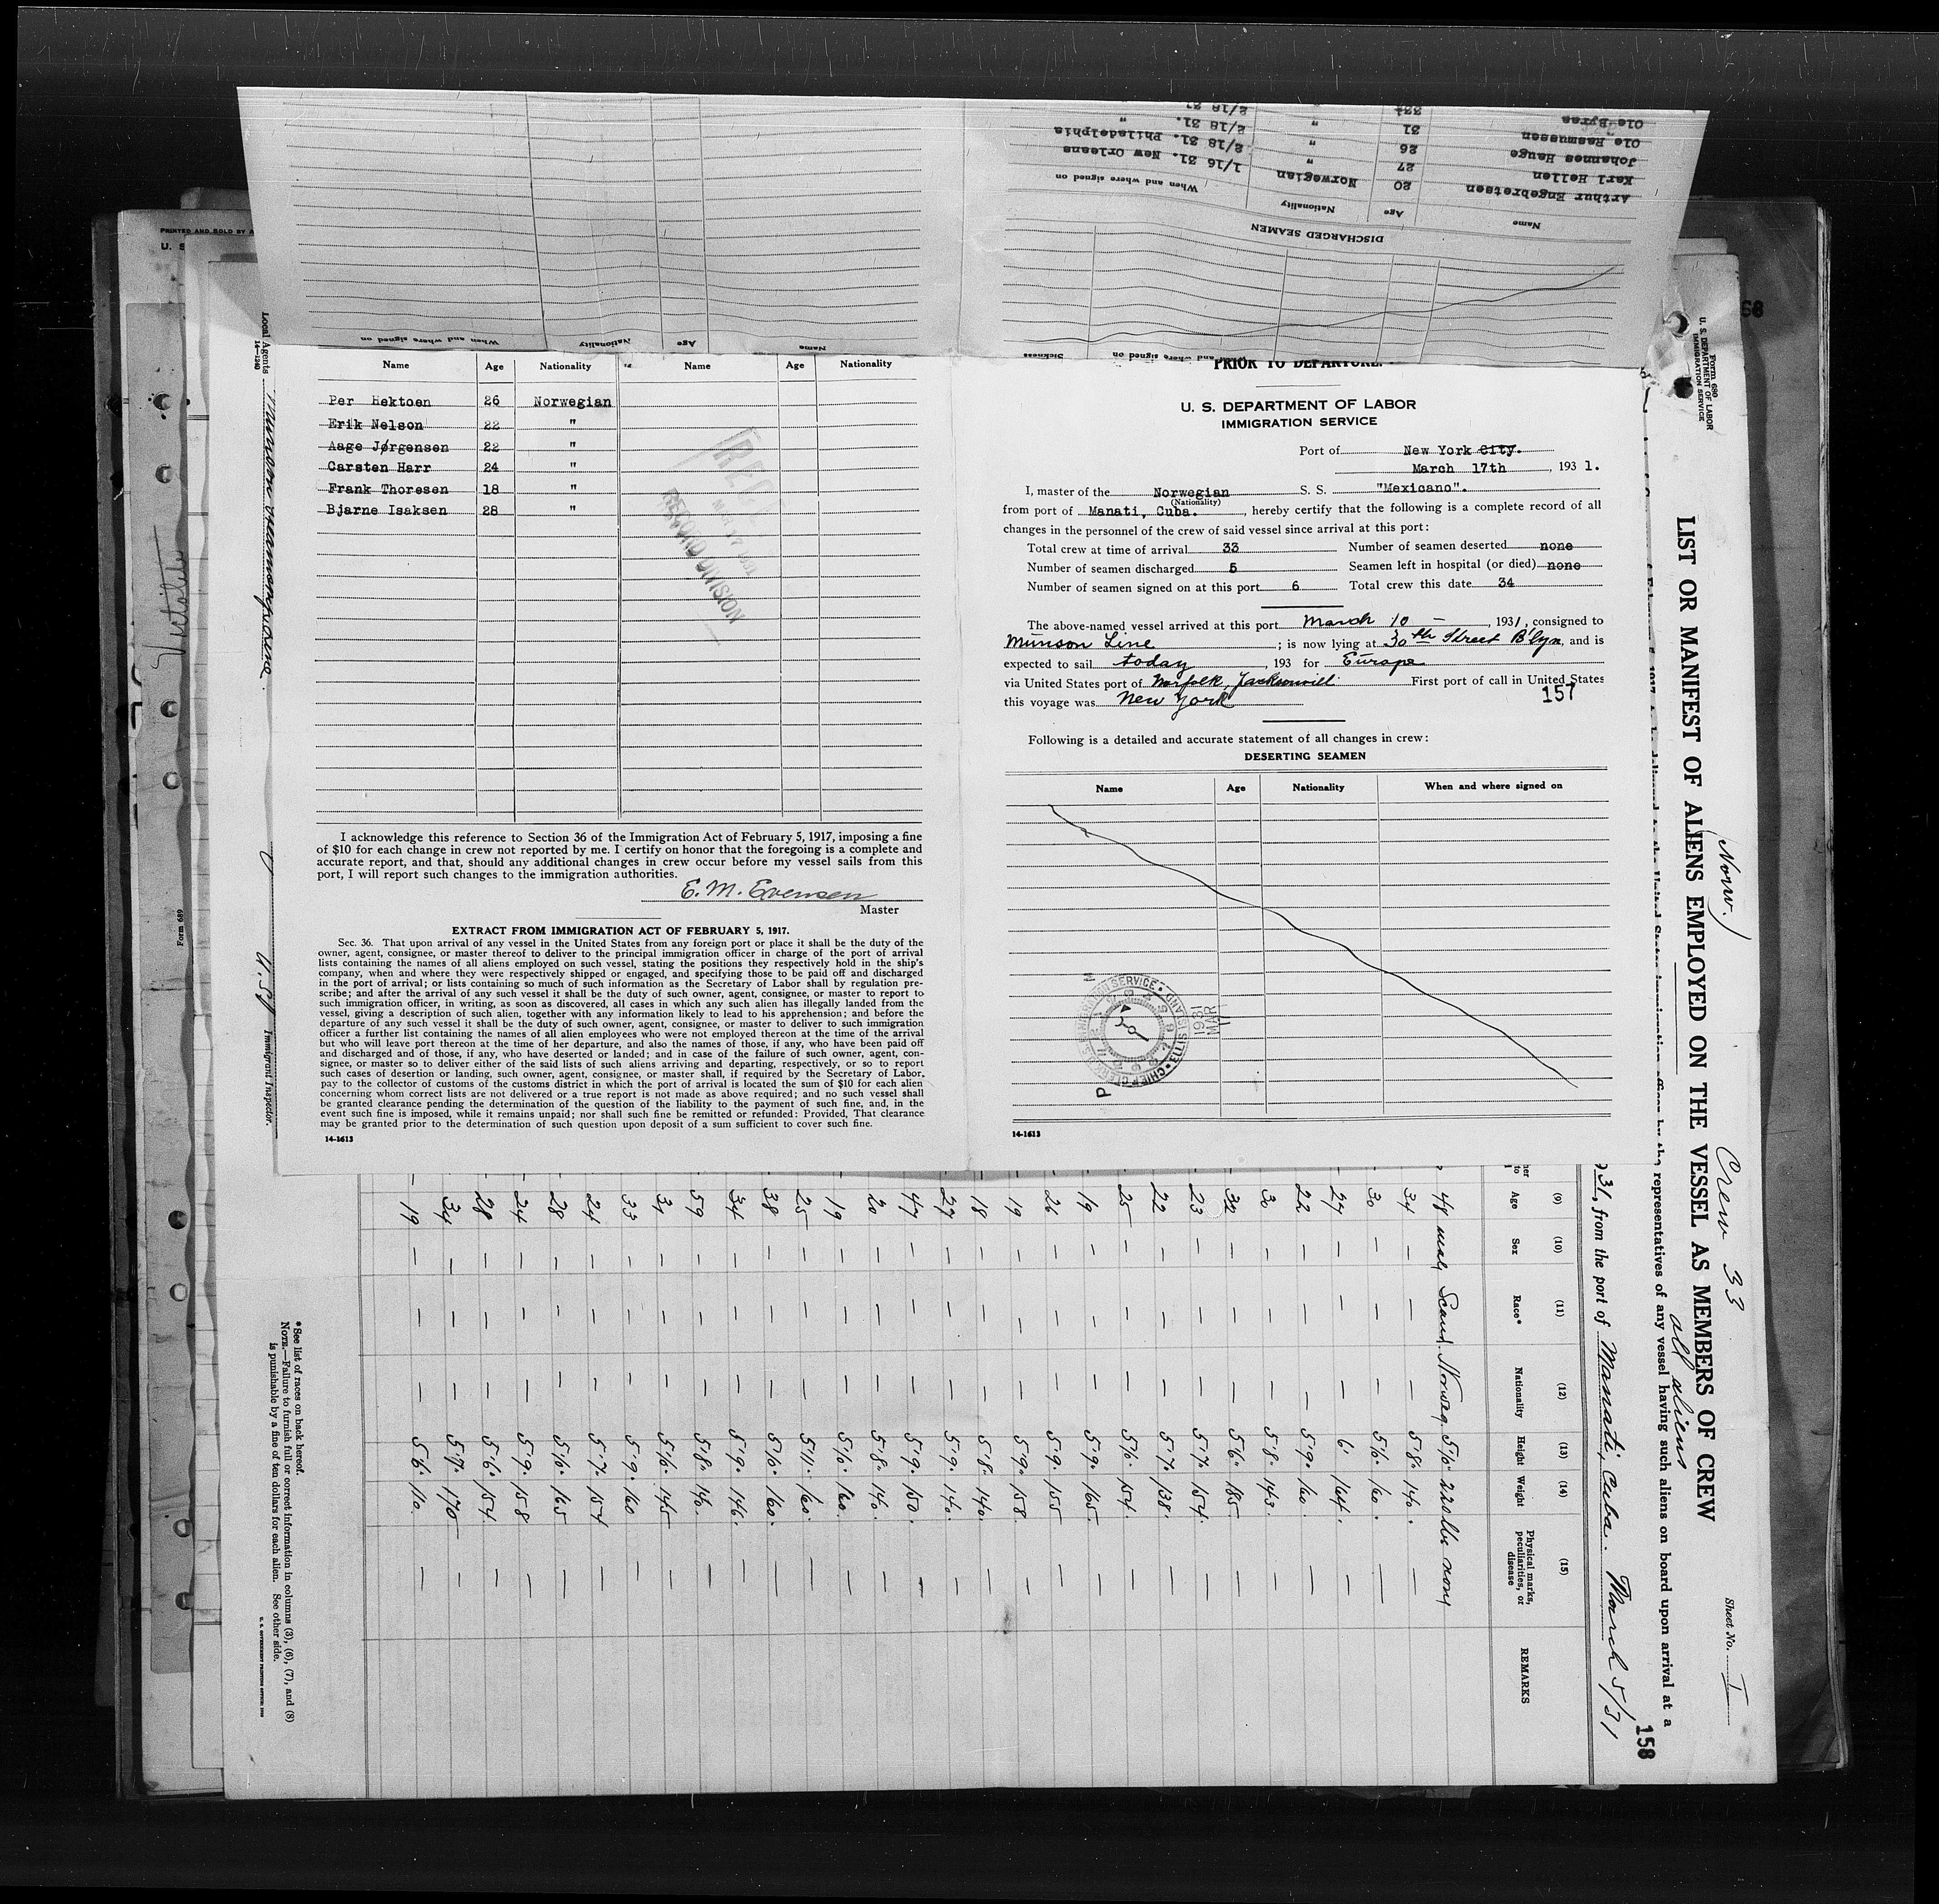 DISCHARGED SEAMEN
Name Age Nationality When and where signed on
Arthur Engebretsen 20 Norwegian 1/16 31. New Orleans
Karl Hellen 27 " 2/18 31. Philadelphia
Johannes Hauge 26 " 2/18 31. "
Ole Rasmussen 31 " 2/18 31
Ole Byras
Name Age Nationality When and where signed on
Name Age Nationality Name Age Nationality
Per Hektoen 26 Norwegian
Erik Nelson 22 "
Aage Jørgensen 22 "
Carsten Harr 24 "
Frank Thoresen 18 "
Bjarne Isaksen 28 "
RECORD DIVISION
I acknowledge this reference to Section 36 of the Immigration Act of February 5, 1917, imposing a fine
of $10 for each change in crew not reported by me. I certify on honor that the foregoing is a complete and
accurate report, and that, should any additional changes in crew occur before my vessel sails from this
port, I will report such changes to the immigration authorities.
E. M. Evensen
Master
EXTRACT FROM IMMIGRATION ACT OF FEBRUARY 5, 1917.
Sec. 36. That upon arrival of any vessel in the United States from any foreign port or place it shall be the duty of the
owner, agent, consignee, or master thereof to deliver to the principal immigration officer in charge of the port of arrival
lists containing the names of all aliens employed on such vessel, stating the positions they respectively hold in the ship's
company, when and where they were respectively shipped or engaged, and specifying those to be paid off and discharged
in the port of arrival; or lists containing so much of such information as the Secretary of Labor shall by regulation pre-
scribe; and after the arrival of any such vessel it shall be the duty of such owner, agent, consignee, or master to report to
such immigration officer, in writing, as soon as discovered, all cases in which any such alien has illegally landed from the
vessel, giving a description of such alien, together with any information likely to lead to his apprehension; and before the
departure of any such vessel it shall be the duty of such owner, agent, consignee, or master to deliver to such immigration
officer a further list containing the names of all alien employees who were not employed thereon at the time of the arrival
but who will leave port thereon at the time of her departure, and also the names of those, if any, who have been paid off
and discharged and of those, if any, who have deserted or landed; and in case of the failure of such owner, agent, con-
signee, or master so to deliver either of the said lists of such aliens arriving and departing, respectively, or so to report
such cases of desertion or landing, such owner, agent, consignee, or master shall, if required by the Secretary of Labor,
pay to the collector of customs of the customs district in which the port of arrival is located the sum of $10 for each alien
concerning whom correct lists are not delivered or a true report is not made as above required; and no such vessel shall
be granted clearance pending the determination of the question of the liability to the payment of such fine, and, in the
event such fine is imposed, while it remains unpaid; nor shall such fine be remitted or refunded: Provided, That clearance
may be granted prior to the determination of such question upon deposit of a sum sufficient to cover such fine.
14-1613
PRIOR TO DEPARTURE.
U. S. DEPARTMENT OF LABOR
IMMIGRATION SERVICE
Port of New York City.
March 17th, 1931.
I, master of the Norwegian S. S. "Mexicano".
(Nationality)
from port of Manati, Cuba., hereby certify that the following is a complete record of all
changes in the personnel of the crew of said vessel since arrival at this port:
Total crew at time of arrival 33 Number of seamen deserted none
Number of seamen discharged 5 Seamen left in hospital (or died) none
Number of seamen signed on at this port 6 Total crew this date 34
The above-named vessel arrived at this port March 10 —, 1931, consigned to
Munson Line; is now lying at 30th Street B'lyn, and is
expected to sail today, 193 for Europe
via United States port of Norfolk, Jacksonvill First port of call in United States
this voyage was New York
157
Following is a detailed and accurate statement of all changes in crew:
DESERTING SEAMEN
Name Age Nationality When and where signed on
MAR 17 1931
14-1613
Form 689
Local Agents
14-1240
Immigrant Inspector.
Form 680
U. S. DEPARTMENT OF LABOR
IMMIGRATION SERVICE
(Norw.) Crew 33 Sheet No. I
all aliens
LIST OR MANIFEST OF ALIENS EMPLOYED ON THE VESSEL AS MEMBERS OF CREW
representatives of any vessel having such aliens on board upon arrival at a
158
31, from the port of Manati, Cuba. March 5/31
(9) (10) (11) (12) (13) (14) (15)
Age Sex Race* Nationality Height Weight Physical marks, peculiarities, or disease REMARKS
48 male Scand. Norweg. 5'10 220 lbs none
34 — — — 5'8 140. —
30 — — — 5'10 160. —
27 — — — 6' 164. —
22 — — — 5'9 160. —
30 — — — 5'8 143. —
32 — — — 5'6 185. —
23 — — — 5'7 154. —
22 — — — 5'7 138. —
25 — — — 5'6 154. —
19 — — — 5'9 165. —
26 — — — 5'9 155 —
19 — — — 5'9 158 —
18 — — — 5'8 140. —
27 — — — 5'9 140. —
47 — — — 5'9 150. —
20 — — — 5'8 140. —
19 — — — 5'10 160. —
25 — — — 5'11 160. —
38 — — — 5'10 160. —
34 — — — 5'9 146. —
59 — — — 5'8 140. —
31 — — — 5'10 145 —
33 — — — 5'9 160 —
24 — — — 5'7 154 —
28 — — — 5'10 165 —
24 — — — 5'9 158 —
28 — — — 5'6 154 —
34 — — — 5'7 170 —
19 — — — 5'6 110. —
*See list of races on back hereof.
NOTE.—Failure to furnish full or correct information in columns (3), (6), (7), and (8)
is punishable by a fine of ten dollars for each alien. See other side.